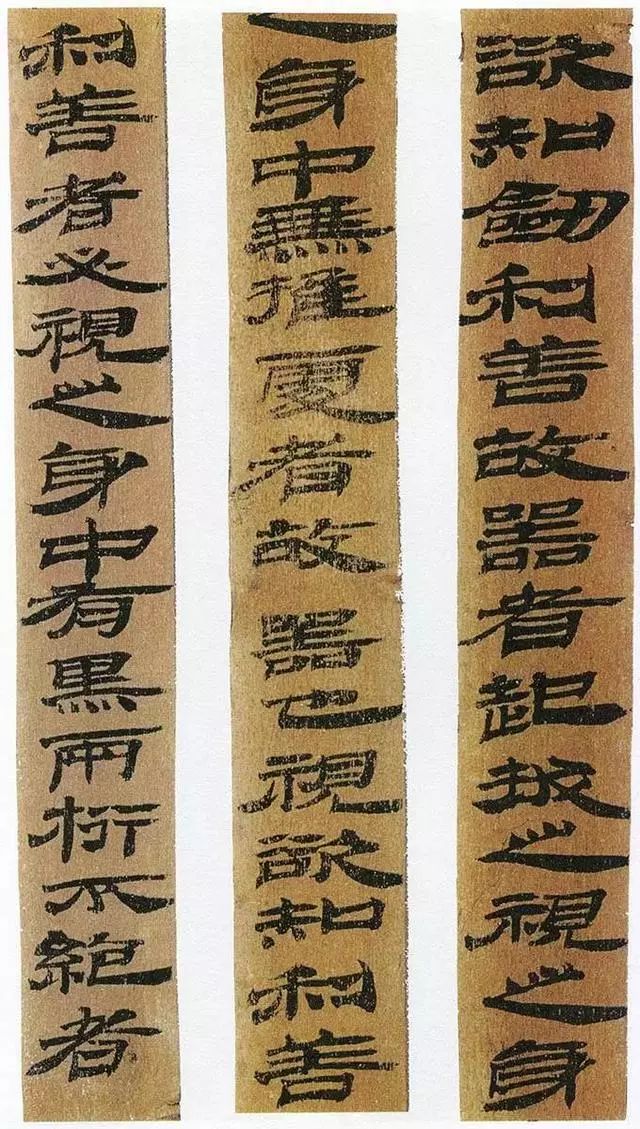 欲知劒利善故器者起拔之視之身
之身中無推處者故器也視欲知利善
利善者必視之身中有黑兩桁不絕者